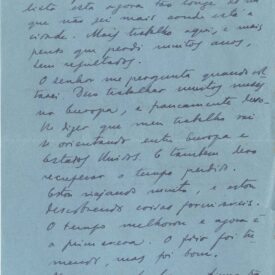 está agora tão longe de mim
que não sei mais aonde está a
cidade. Mais trabalho aqui, e mais
penso que perdi muitos anos,
sem resultados.
O senhor me pergunta quando vol-
tarei. Devo trabalhar muitos meses
na Europa, e francamente devo
lhe dizer que meu trabalho vai
se orientando entre Europa e
Estados Unidos. E também devo
recuperar o tempo perdido.
Estou viajando muito, e estou
descobrindo coisas formidáveis.
O tempo melhorou e agora é
a primavera. O frio foi tre-
mendo, mas foi bom.